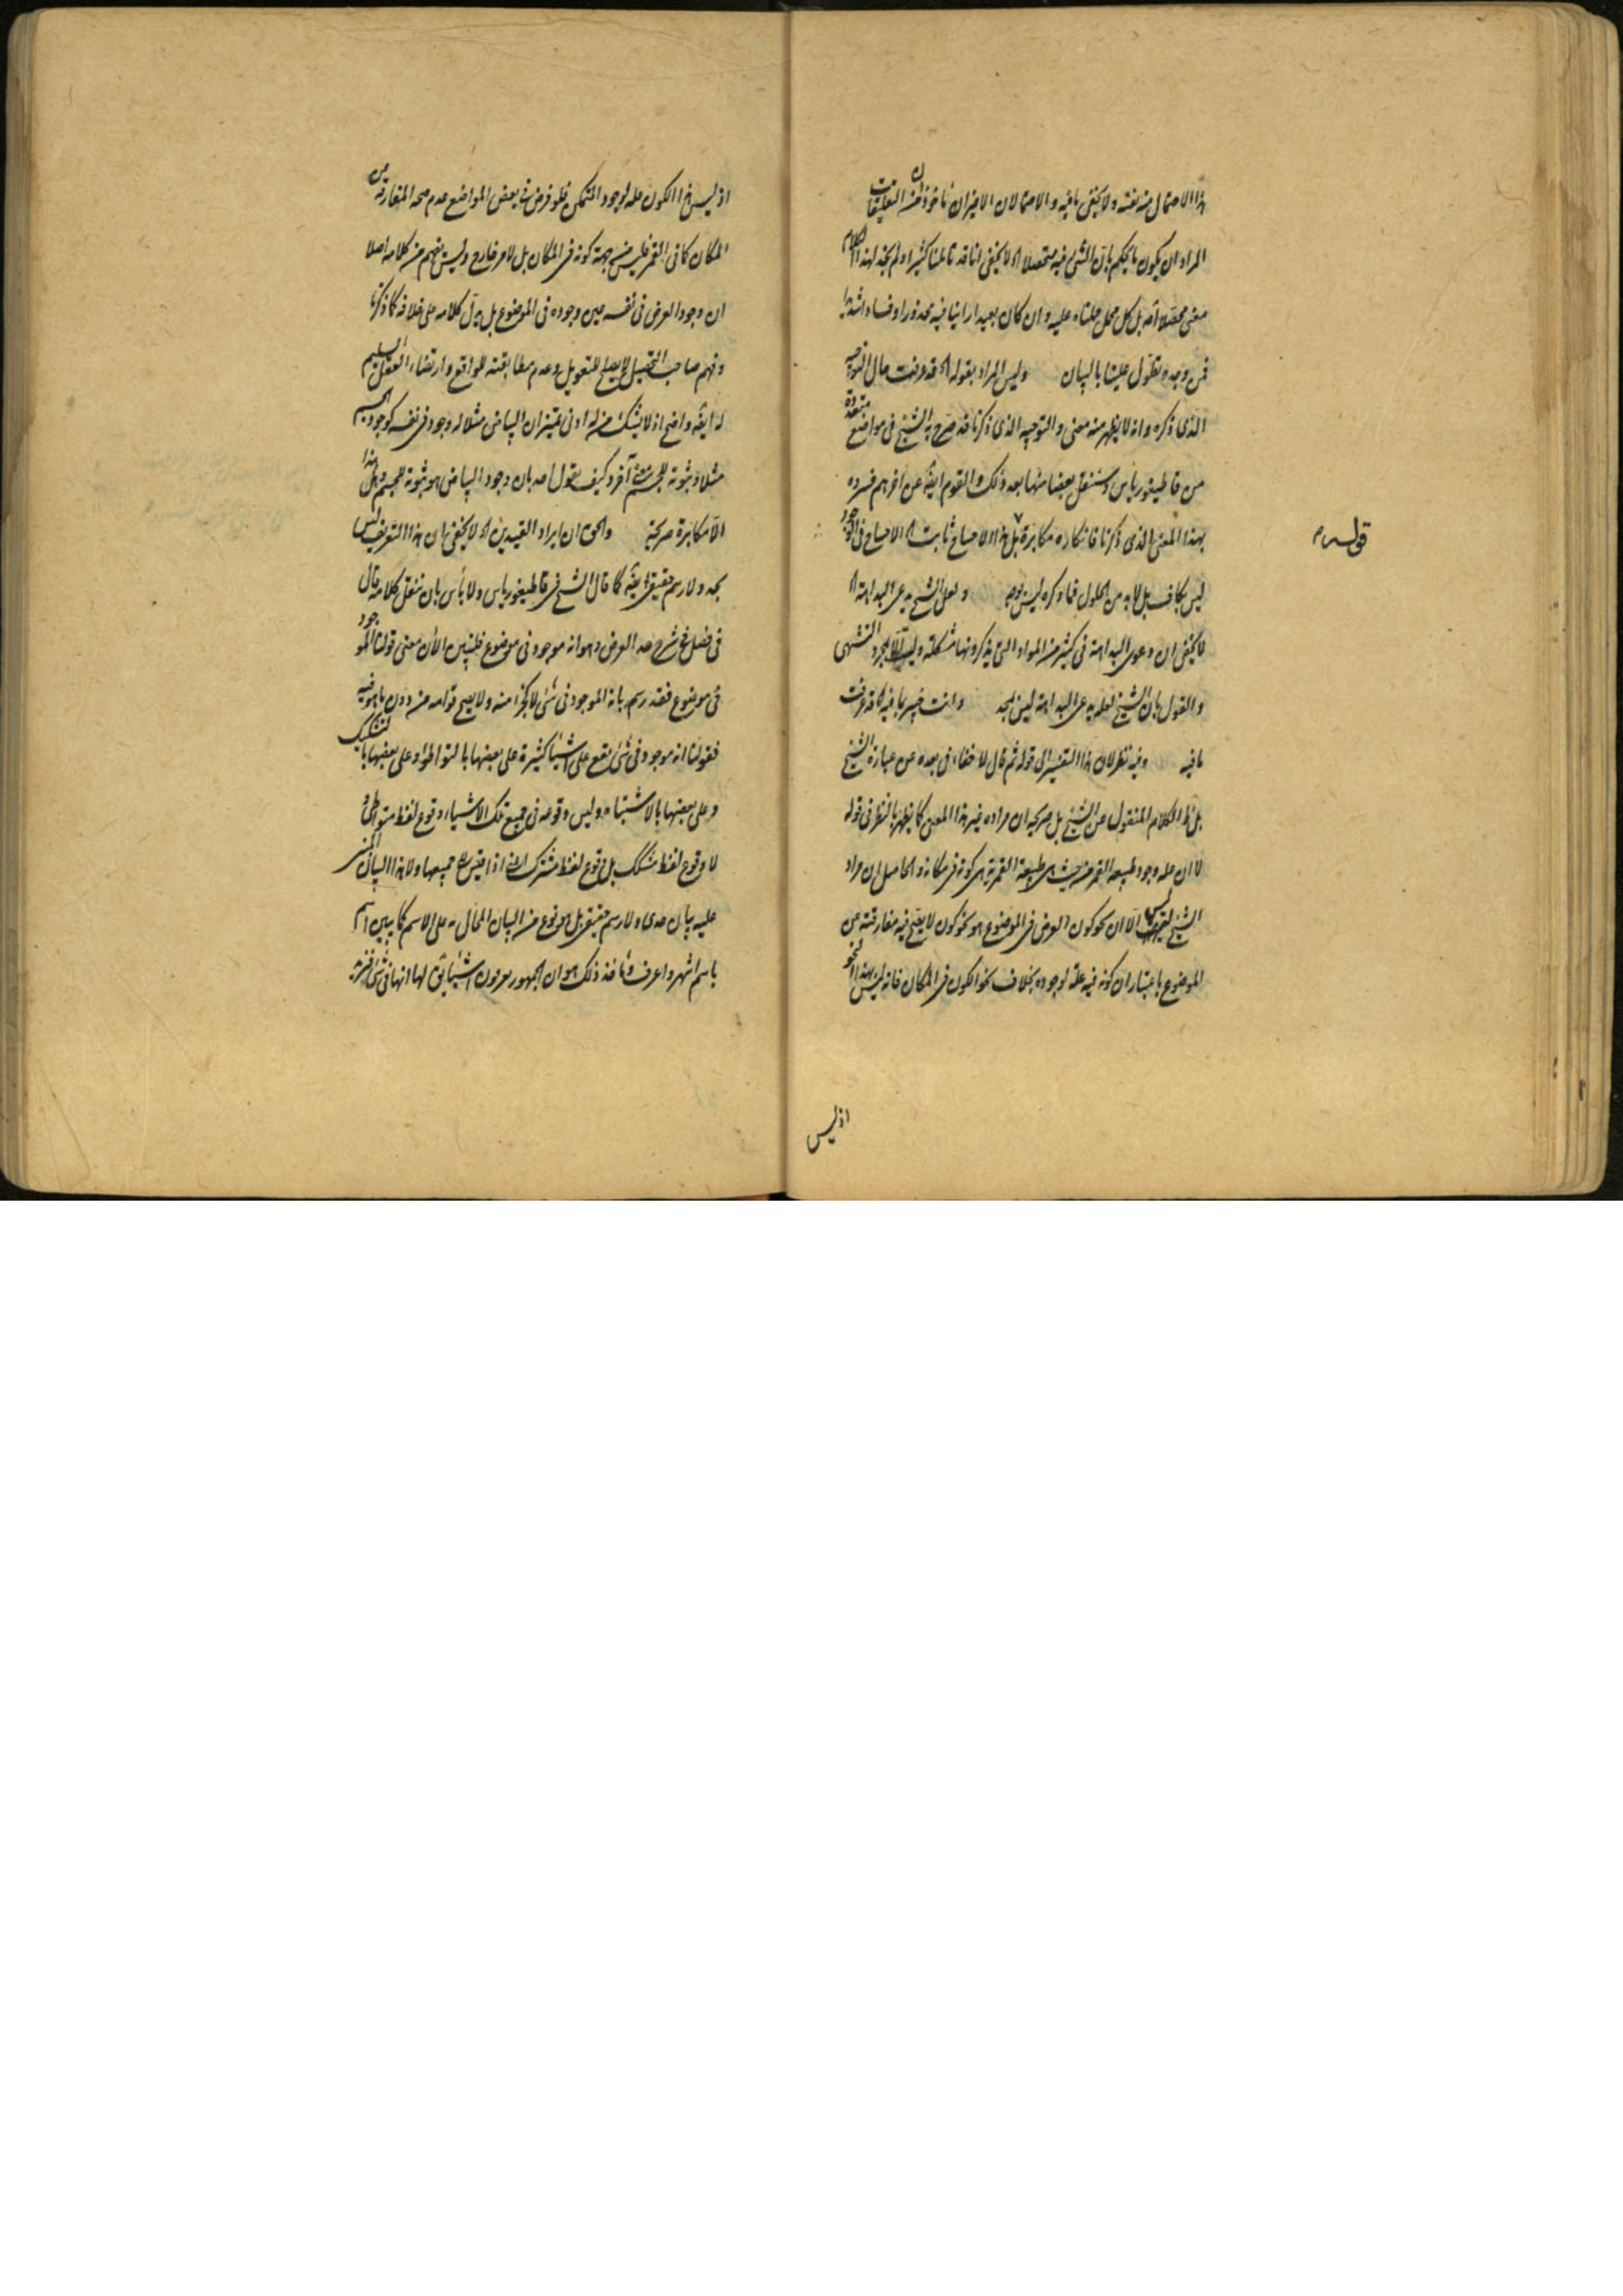 هذا الاحتمال منه نفسه ولا يخفى ما فيه والاحتمالان الاخيران ماخوذان من التعليقات
المراد ان يكون ما يحكم بان الشئ فيه متحصلا اه لا يخفى انا قد تاملنا كثيرا ولم نجد لهذا الكلام
معنى محصلا اصلا بل كل محمل حملناه عليه وان كان بعيدا راينا فيه محذورا وفسادا شديدا
فمن وجده تطول علينا بالبيان وليس المراد بقوله اه قد عرفت حال التوجيه
الذى ذكره وانه لا يظهر منه معنى والتوجيه الذى ذكرنا قد صرح به الشيخ فى مواضع متعددة
من قاطيغورياس وسننقل بعضا منها بعد ذلك والقوم ايضا عن اخرهم فسروه
بهذا المعنى الذى ذكرنا فانكاره مكابرة بل هذا الاحتياج ثابت اه الاحتياج فى الوجود
ليس بكاف بل لابد من الحلول فما ذكره ليس بوجه ولعل الشيخ يدعى البداهة اه
لا يخفى ان دعوى البداهة فى كثير من المواد التى يذكرونها مشكلة وليس الا بمجرد التشهى
والقول بان الشيخ لعله يدعى البداهة ليس بجد وانت خبير بما فيه اه قد عرفت
ما فيه وفيه نظر لان هذا التفسير الى قوله ثم قال لا خفاء فى بعده عن عبارة الشيخ
بل ظ الكلام المنقول عن الشيخ بل صريحه ان مراده غير هذا المعنى كما يظهر بالنظر فى قوله
لا ان علة وجود طبيعة القمر من حيث هى طبيعة القمرية هى كونه فى مكانه والحاصل ان مراد
الشيخ ليس الا ان نحو كون العرض فى الموضوع هو نحو كون لا يصح فيه مفارقته عن
الموضوع باعتبار ان كونه فيه علة لوجوده بخلاف نحو الكون فى المكان فانه ليس بهذا النحو
قوله م
اذ ليس
اذ ليس هذا الكون علة لوجود المتمكن فلو فرض فى بعض المواضع عدم صحة المفارقة من
المكان كما فى القمر فليس من جهة كونه فى المكان بل لامر خارج وليس يفهم من كلامه اصلا
ان وجود العرض فى نفسه عين وجوده فى الموضوع بل يدل كلامه على خلافه كما ذكرنا
وفهم صاحب التحصيل لا يصلح للتعويل وعدم مطابقته للواقع وارتضاء العقل السليم
له ايضا واضح اذ لا يشك من له ادنى تميز ان البياض مثلا له وجود فى نفسه كوجود الجسم
مثلا وثبوته للجسم شئ آخر وكيف يقول احد بان وجود البياض هو ثبوته للجسم وهل هذا
الا مكابرة صريحة والحق ان ايراد القيدين اه لا يخفى ان هذا التعريف ليس
بحد ولا رسم حقيقى ايضا كما قال الشيخ فى قاطيغورياس ولا باس بان ننقل كلامه قال
فى فصل فى شرح حد العرض وهو انه موجود فى موضوع فلنبين الان معنى قولنا الموجود
فى موضوع فقد رسم بانه الموجود فى شئ لا كجزء منه ولا يصح قوامه من دون ما هو فيه
فقولنا انه موجود فى شئ يقع على اشياء كثيرة على بعضها بالتواطؤ وعلى بعضها بالتشكيك
وعلى بعضها بالاشتباه وليس وقوعه فى جميع تلك الاشياء وقوع لفظ متواطئ و
لا وقوع لفظ مشكك بل وقوع لفظ مشترك اذا قيس الى جميعها ولا هذا البيان المبنى
عليه بيان حدى ولا رسم حقيقى بل هو نوع من البيان المحال به على الاسم كما يبين اسم
باسم اشهر واعرف وماخذ ذلك هو ان الجمهور يعرفون اشياء يق لها انها فى شئ